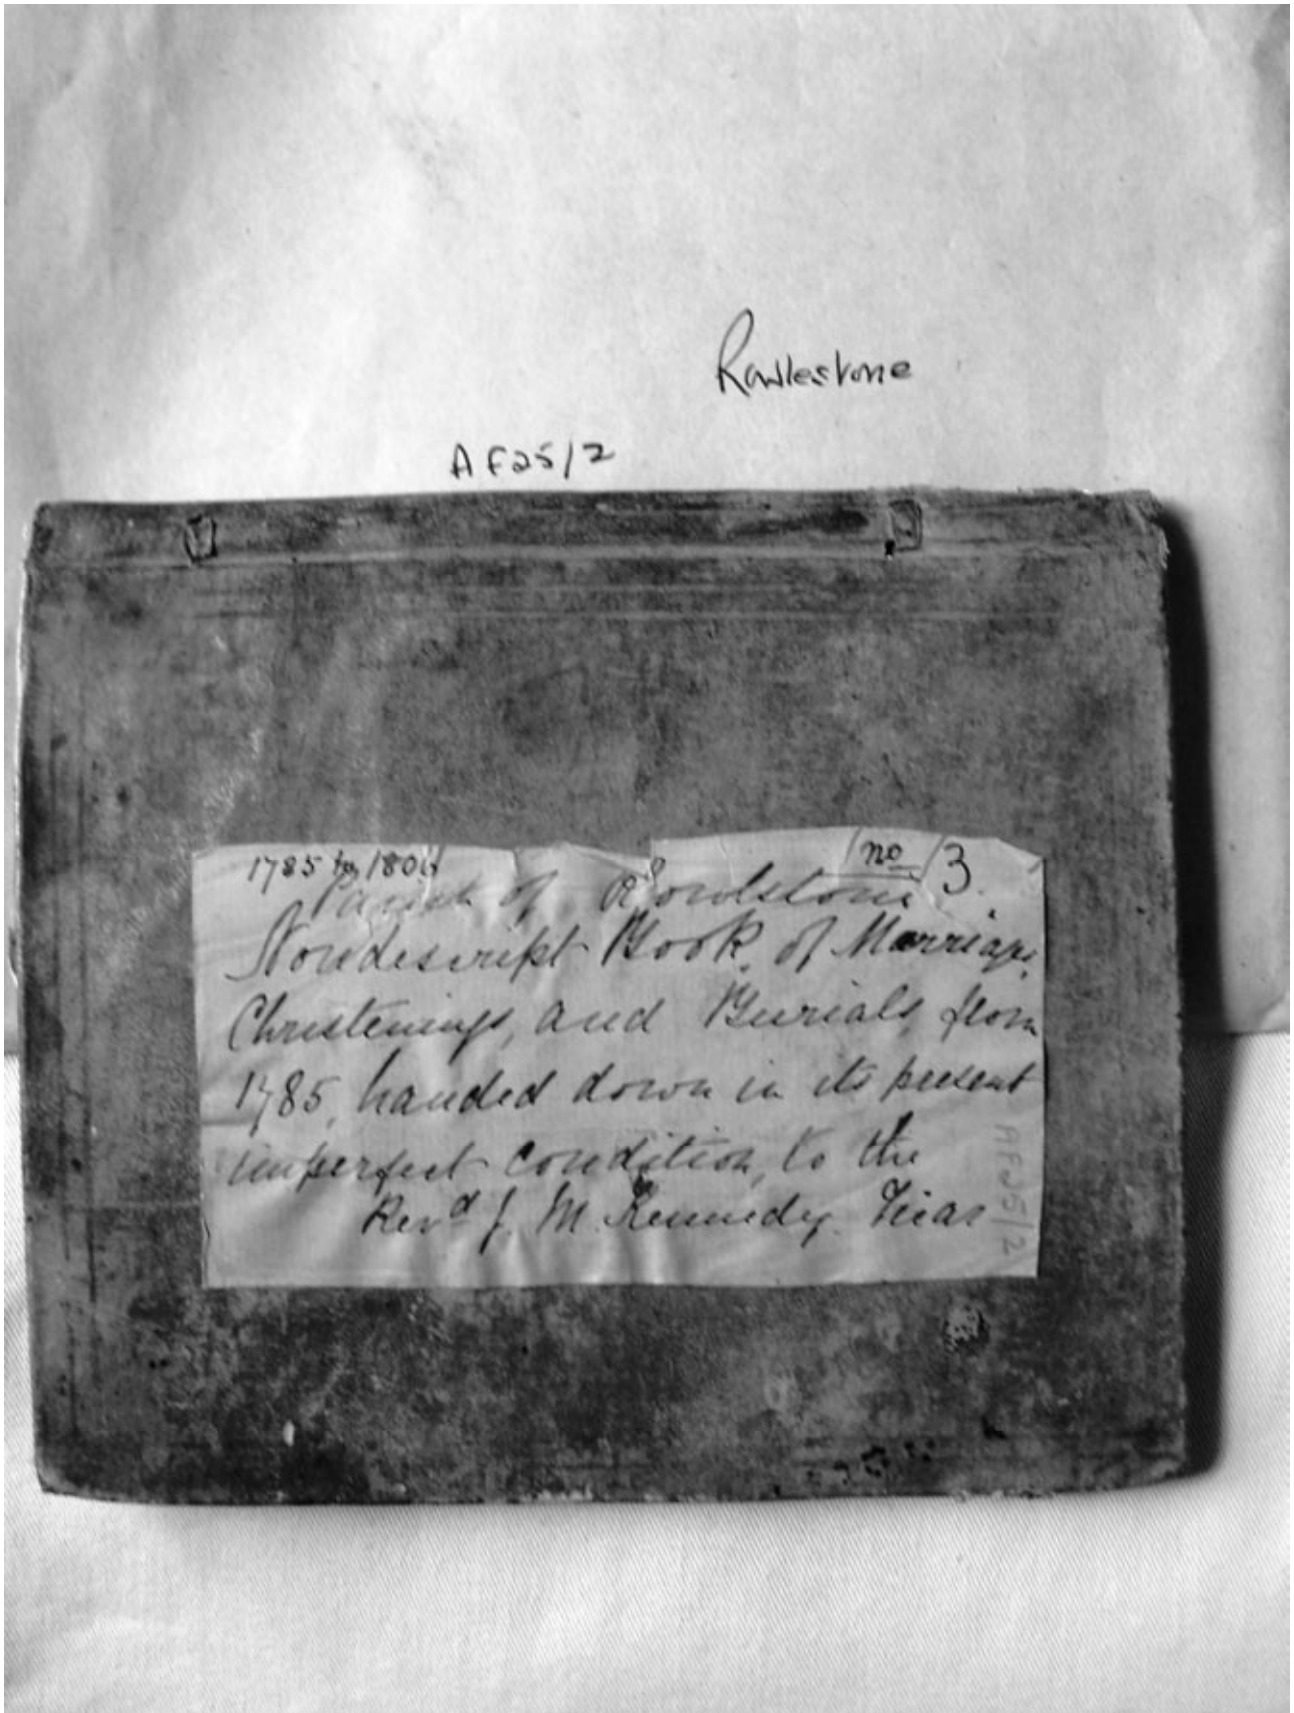 Rowlestone
AF25/2
1785 to 180
no 3.
Parish of Rowlstone
Nondescript Book, of Marriage,
Christenings, and Burials, from
1785, handed down in its present
imperfect condition, to the
Revd J. M. Kennedy. Vicar
AF25/2